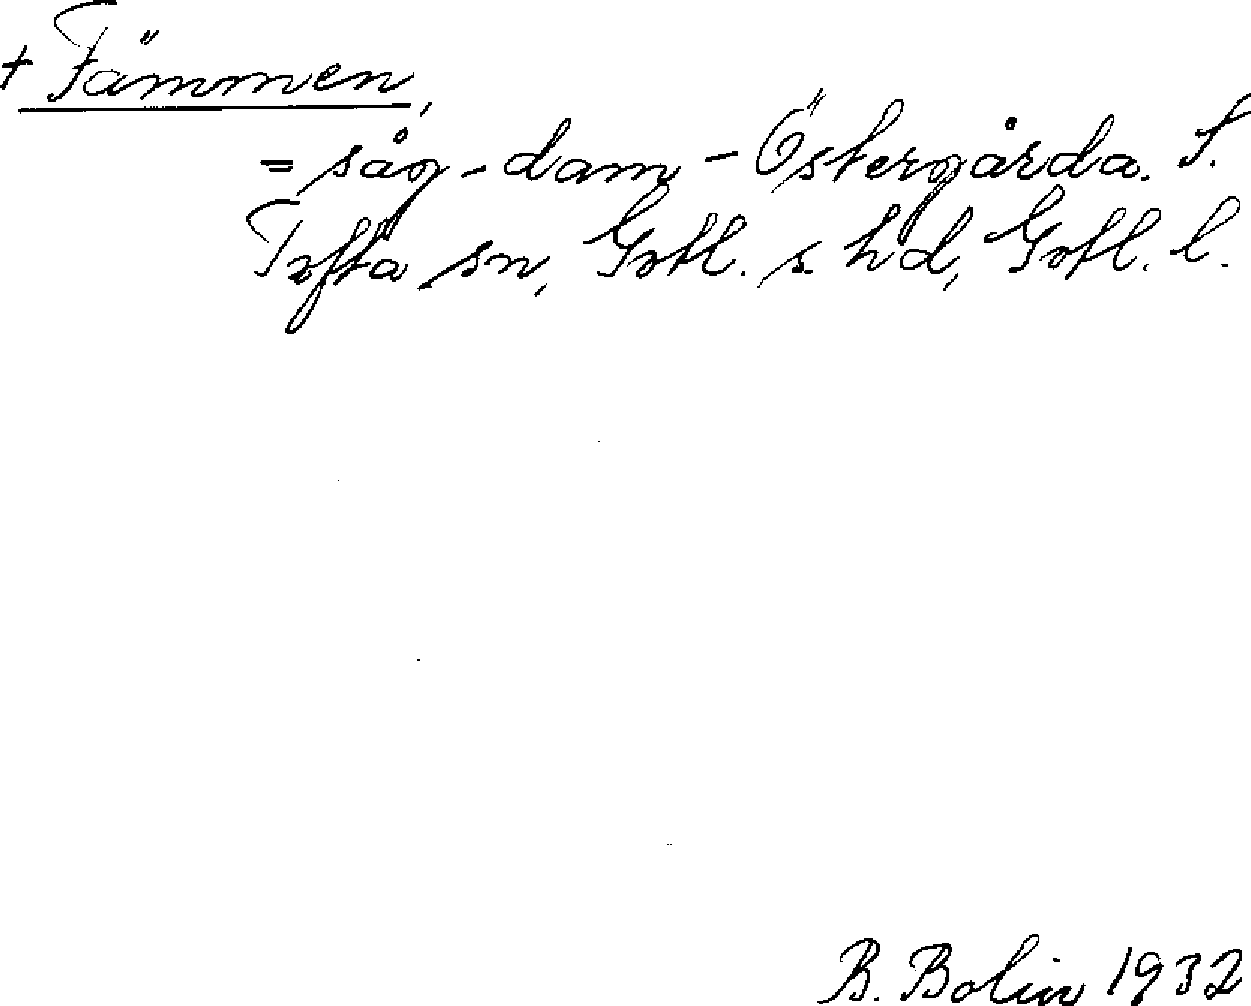 + Fämmen,
= såg-dam - Östergårda. S.
Tofta sn, Gotl. s. hd, Gotl. l.
B. Bolin 1932